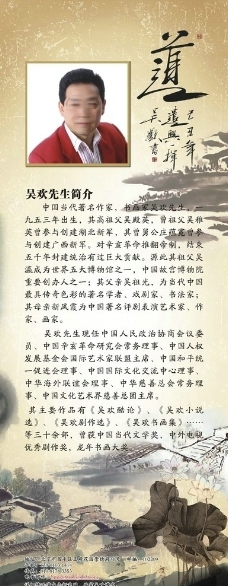 道
己丑年
吴欢书
吴欢先生简介
中国当代著名作家、书画家吴欢先生，一
九五三年出生，其高祖父吴殿英，曾祖父吴稚
英曾参与创建湖北新军，其曾舅公庄蕴宽曾参
与创建广西新军。对辛亥革命推翻帝制，结束
五千年封建统治有过巨大贡献。源此其祖父吴
瀛成为世界五大博物馆之一，中国故宫博物院
重要创办人之一；其父亲吴祖光，为当代中国
最具传奇色彩的著名学者、戏剧家、书法家；
其母亲新凤霞为中国著名评剧表演艺术家、作
家、画家。
吴欢先生现任中国人民政治协商会议委
员、中国辛亥革命研究会常务理事、中国人权
发展基金会国际艺术家联盟主席、中国和平统
一促进会理事、中国国际文化交流中心理事、
中华海外联谊会理事、中华慈善总会常务理
事、中国文化艺术界慈善总团主席。
其主要作品有《吴欢酷论》、《吴欢小说
选》、《吴欢剧作选》、《吴欢书画集》……
等三十余部，曾获中国当代文学奖、中外电视
优秀剧作奖，龙年书画大奖